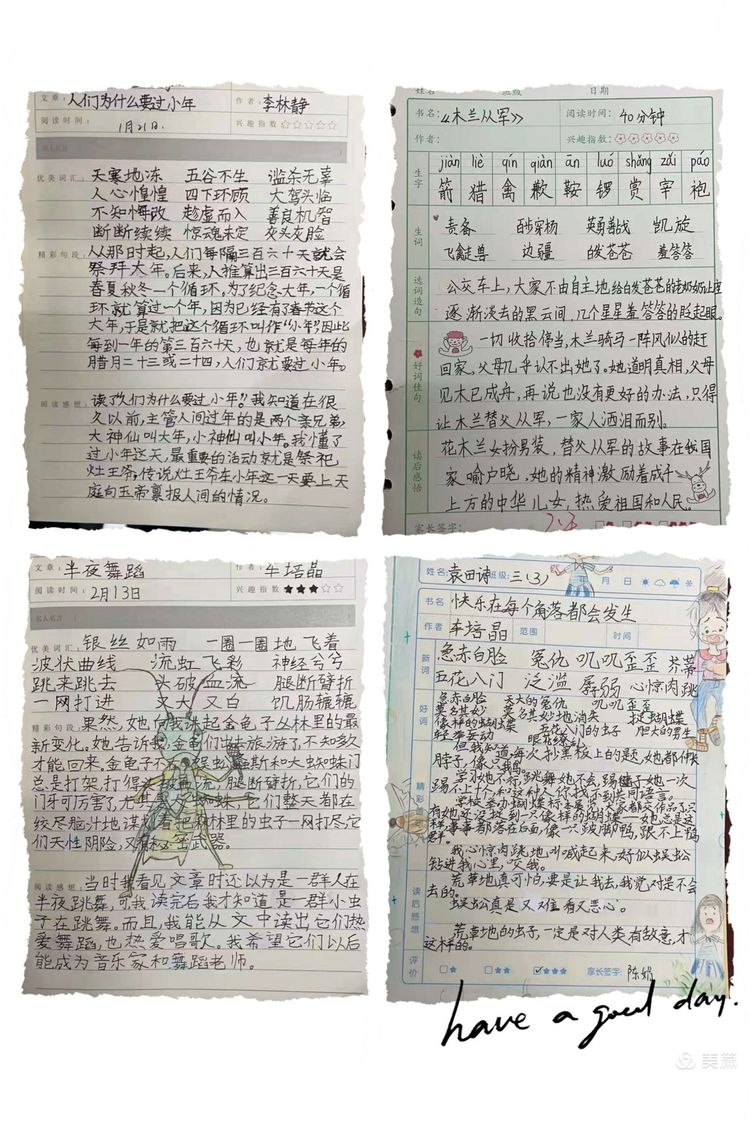 文章:人们为什么要过小年 作者:李林静
阅读时间:1月21日. 兴趣指数:☆☆☆☆☆
名人名言
优美词汇:天寒地冻 五谷不生 滥杀无辜
人心惶惶 四下环顾 大驾头临
不知悔改 趁虚而入 善良机智
断断续续 惊魂未定 灰头灰脸
精彩句段:从那时起,人们每隔三百六十天就会
祭拜大年。后来,人推算出三百六十天是
春夏秋冬一个循环,为了纪念大年,一个循
环就算过一个年,因为已经有了春节这个
大年,于是就把这个循环叫作“小年”。因此
每到一年的第三百六十天,也就是每年的
腊月二十三或二十四,人们就要过小年。
阅读感想:读了“人们为什么要过小年”。我知道在很
久以前,主管人间过年的是两个亲兄弟,
大神仙叫大年,小神仙叫小年。我懂了
过小年这天,最重要的活动就是祭祀
灶王爷,传说灶王爷在小年这一天要上天
庭向玉帝禀报人间的情况。
姓名: 班级 日期
书名:《木兰从军》 阅读时间:40分钟
作者: 兴趣指数:
jiàn liè qín qiàn ān luó shǎng zǎi páo
生字 箭 猎 禽 歉 鞍 锣 赏 宰 袍
生词 责备 百步穿杨 英勇善战 凯旋
飞禽走兽 边疆 白发苍苍 羞答答
选词造句 公交车上,大家不由自主地给白发苍苍的老奶奶让座
逐渐淡去的黑云间,几个星星羞答答的眨起眼。
好词佳句 一切收拾停当,木兰骑马一阵风似的赶
回家,父母几乎认不出她了。她道明真相,父母
见木已成舟,再说也没有更好的办法,只得
让木兰替父从军,一家人洒泪而别。
读后感悟 花木兰女扮男装,替父从军的故事在我国
家喻户晓,她的精神激励着成千
上万的中华儿女,热爱祖国和人民。
家长签字:
文章:半夜舞蹈 作者:车培晶
阅读时间:2月13日 兴趣指数:★★★☆☆
名人名言
优美词汇:银丝如雨 一圈一圈地飞着
波状曲线 流虹飞彩 神经兮兮
跳来跳去 头破血流 腿断臂折
一网打进 又大又白 饥肠辘辘
精彩句段:果然,她向我谈起金龟子丛林里的最
新变化。她告诉我,金龟们出去旅游了不知多久
才能回来,金龟子不在,
总是打架,打得头破血流,腿断臂折,它们的
门牙可厉害了,尤其是 蜘蛛,它们整天都在
绞尽脑汁地谋 着把森林里的虫子一网打尽,它
们天性阴险,又有秘密武器。
阅读感想:当时我看见文章时还以为是一群人在
半夜跳舞,可我读完后我才知道是一群小虫
子在跳舞。而且,我能从文中读出它们热
爱舞蹈,也热爱唱歌。我希望它们以后
能成为音乐家和舞蹈老师。
姓名:袁田诗 班级:三(3) 年 月 日
书名 快乐在每个角落都会发生
作者 车培晶 范围 时间
新词 急赤白脸 冤仇 叽叽歪歪 芬幕
五花八门 泛滥 孱弱 心惊肉跳
好词 急赤白脸 天大的冤仇 叽叽歪歪
莫名其妙 莫名其妙地消失 捉蝴蝶
像样的蝴蝶 五花八门的虫子 胆大的男生
轻举妄动 眼花缭乱
精彩 但我知道,每次抄黑板上的题,她都伸长
脖子,像只鹅。
学习她不得,跳舞她不会,踢毽子她一次
踢不上1个,和这种人你找不到共同语言。
学校举办蝴蝶标本展览,大家都交作品了,只
有她还没捉到一只像样的蝴蝶——她总是这
样,事事都落在后面,像一只跛脚鸭,跟不上鸭
群。
我心惊肉跳地叫喊起来,好似蜈蚣
钻进我心里,咬我。
读后感想 荒草地真可怕,要是让我去,我绝对是不会
去的。
蜈蚣真是又难看又恶心。
荒草地的虫子,一定是对人类有敌意,才
这样的。
评价 □★ □★★ ☑★★★ 家长签字:陈娟
have a good day.
美篇